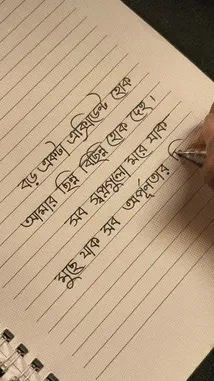 বড় একটা এক্সিডেন্ট হোক
আমার ছিন্ন বিচ্ছিন্ন হোক দেহ,
সব স্বপ্নগুলো মরে যাক
মুছে যাক সব অপূর্ণতার